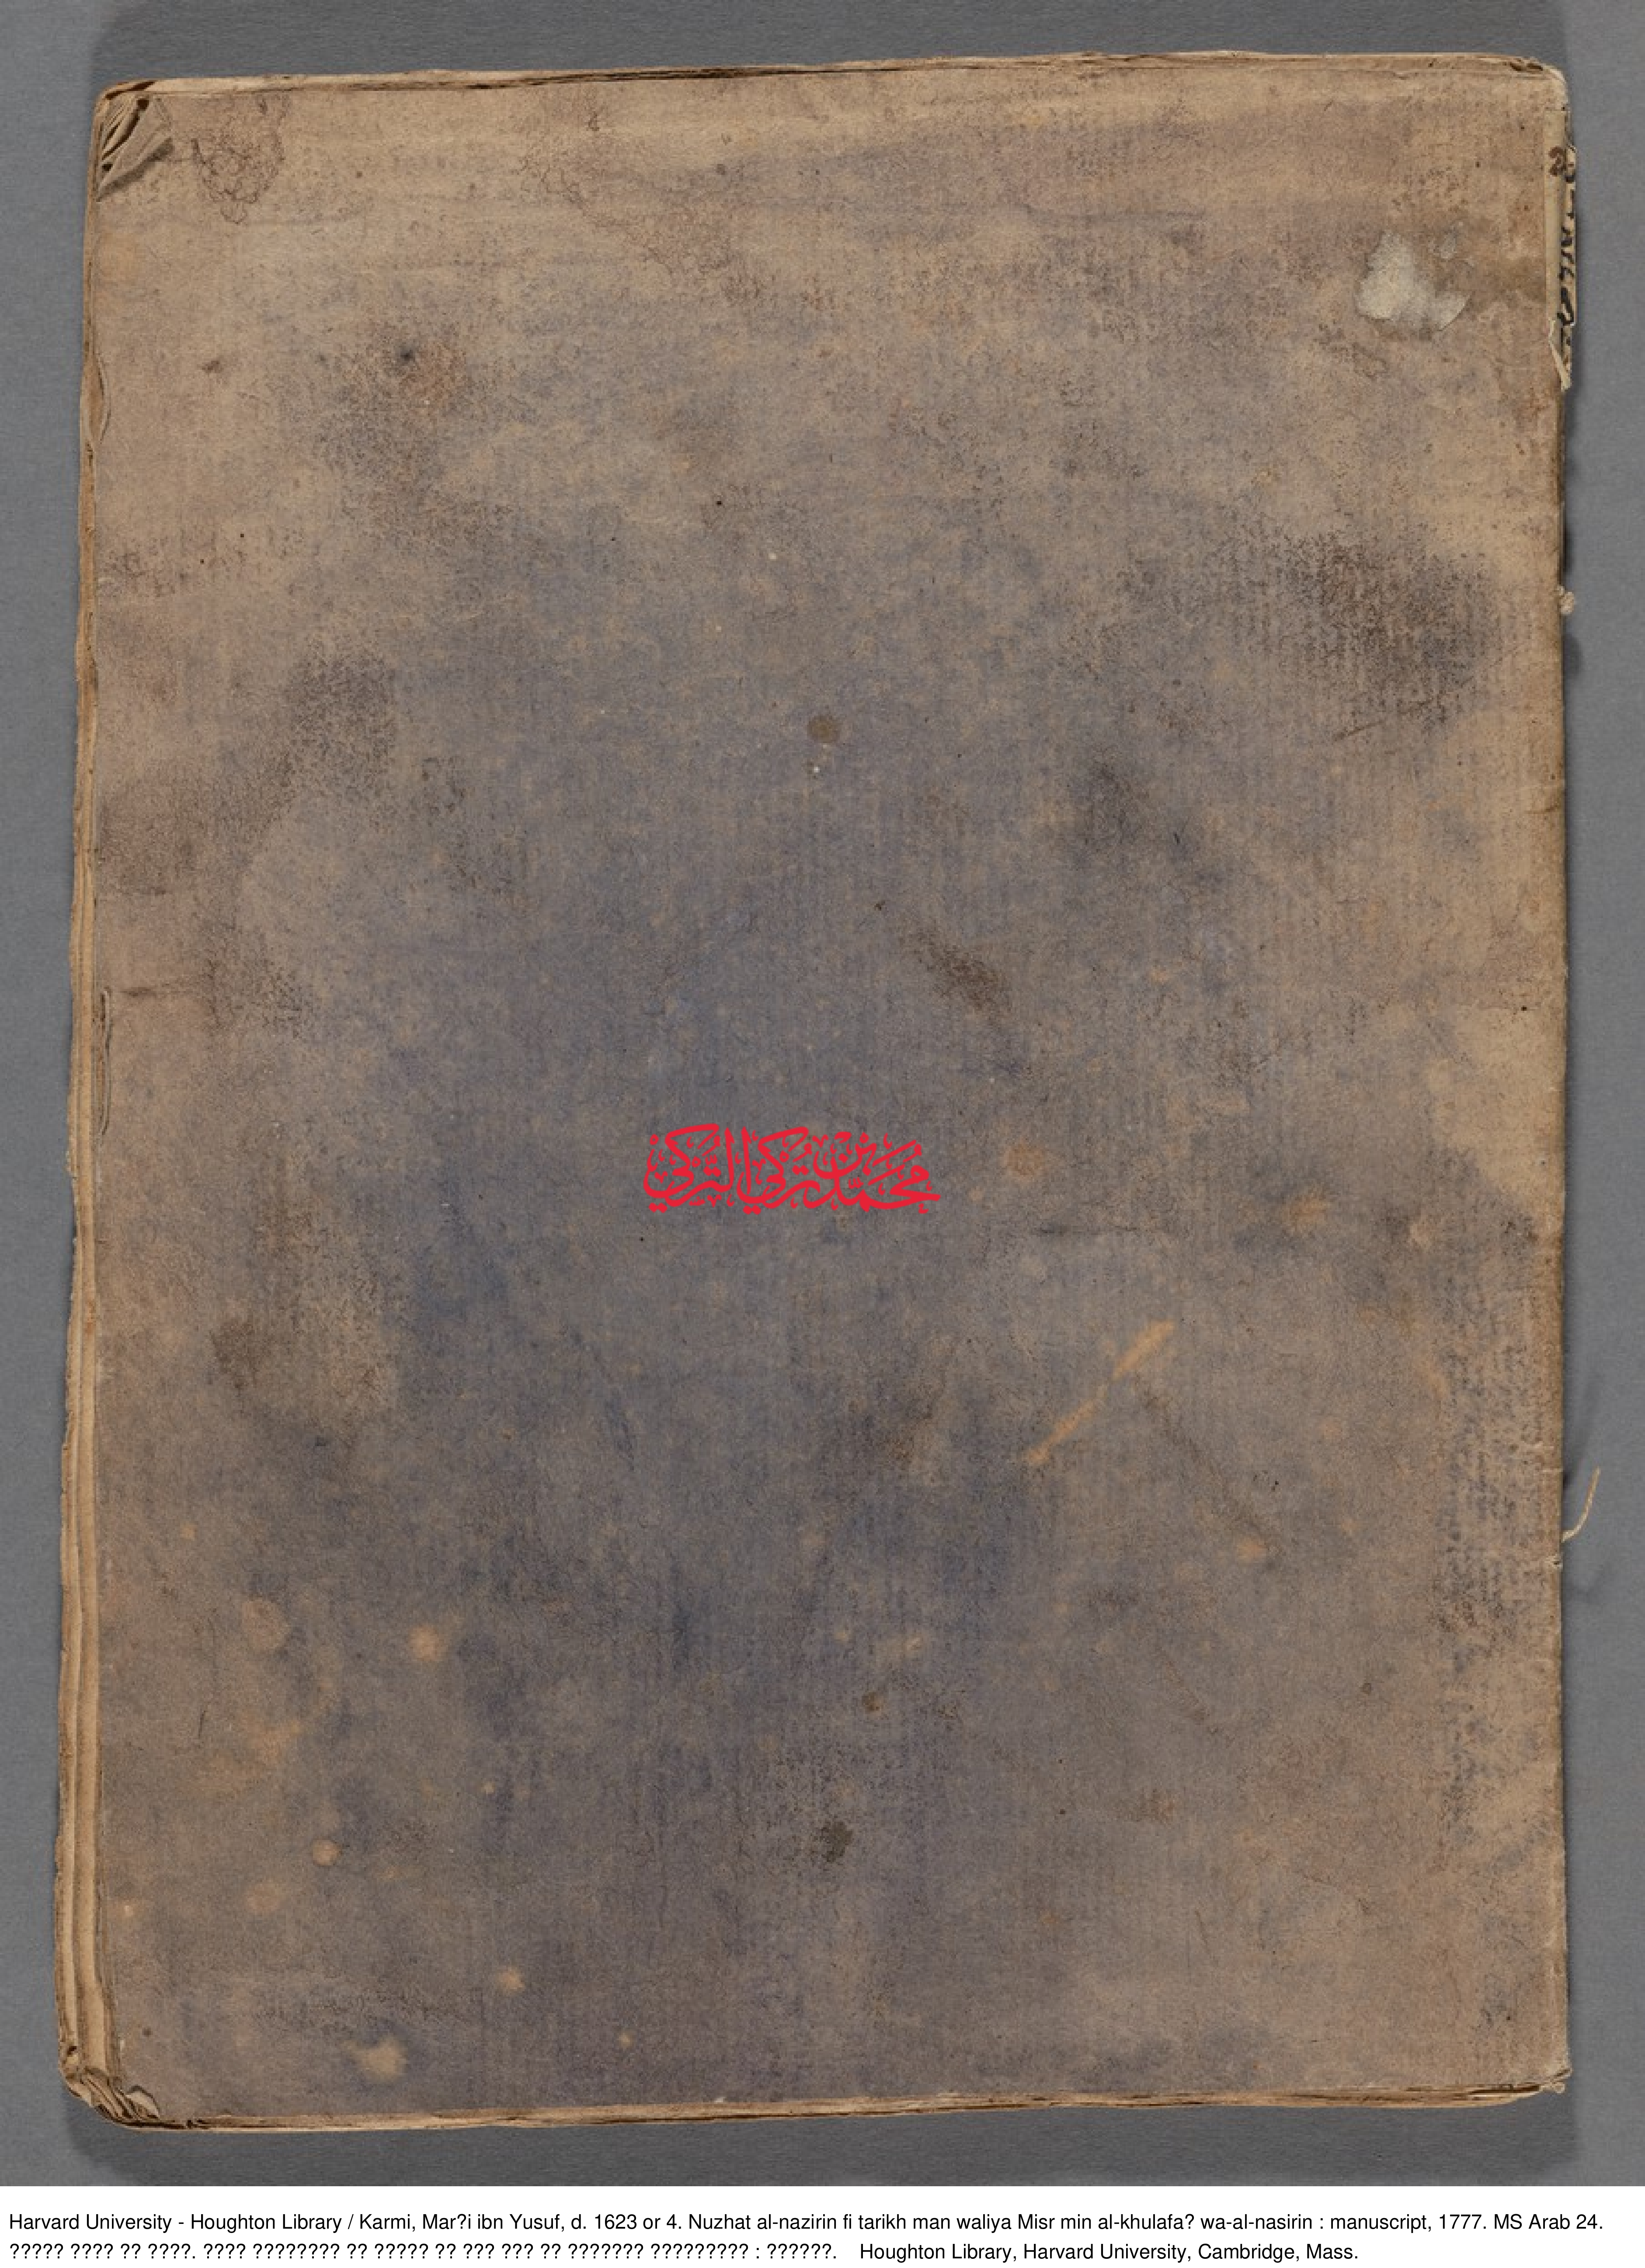 محمد بن تركي التركي
Harvard University - Houghton Library / Karmi, Mar?i ibn Yusuf, d. 1623 or 4. Nuzhat al-nazirin fi tarikh man waliya Misr min al-khulafa? wa-al-nasirin : manuscript, 1777. MS Arab 24.
????? ???? ?? ????. ???? ???????? ?? ????? ?? ??? ??? ?? ??????? ????????? : ??????. Houghton Library, Harvard University, Cambridge, Mass.